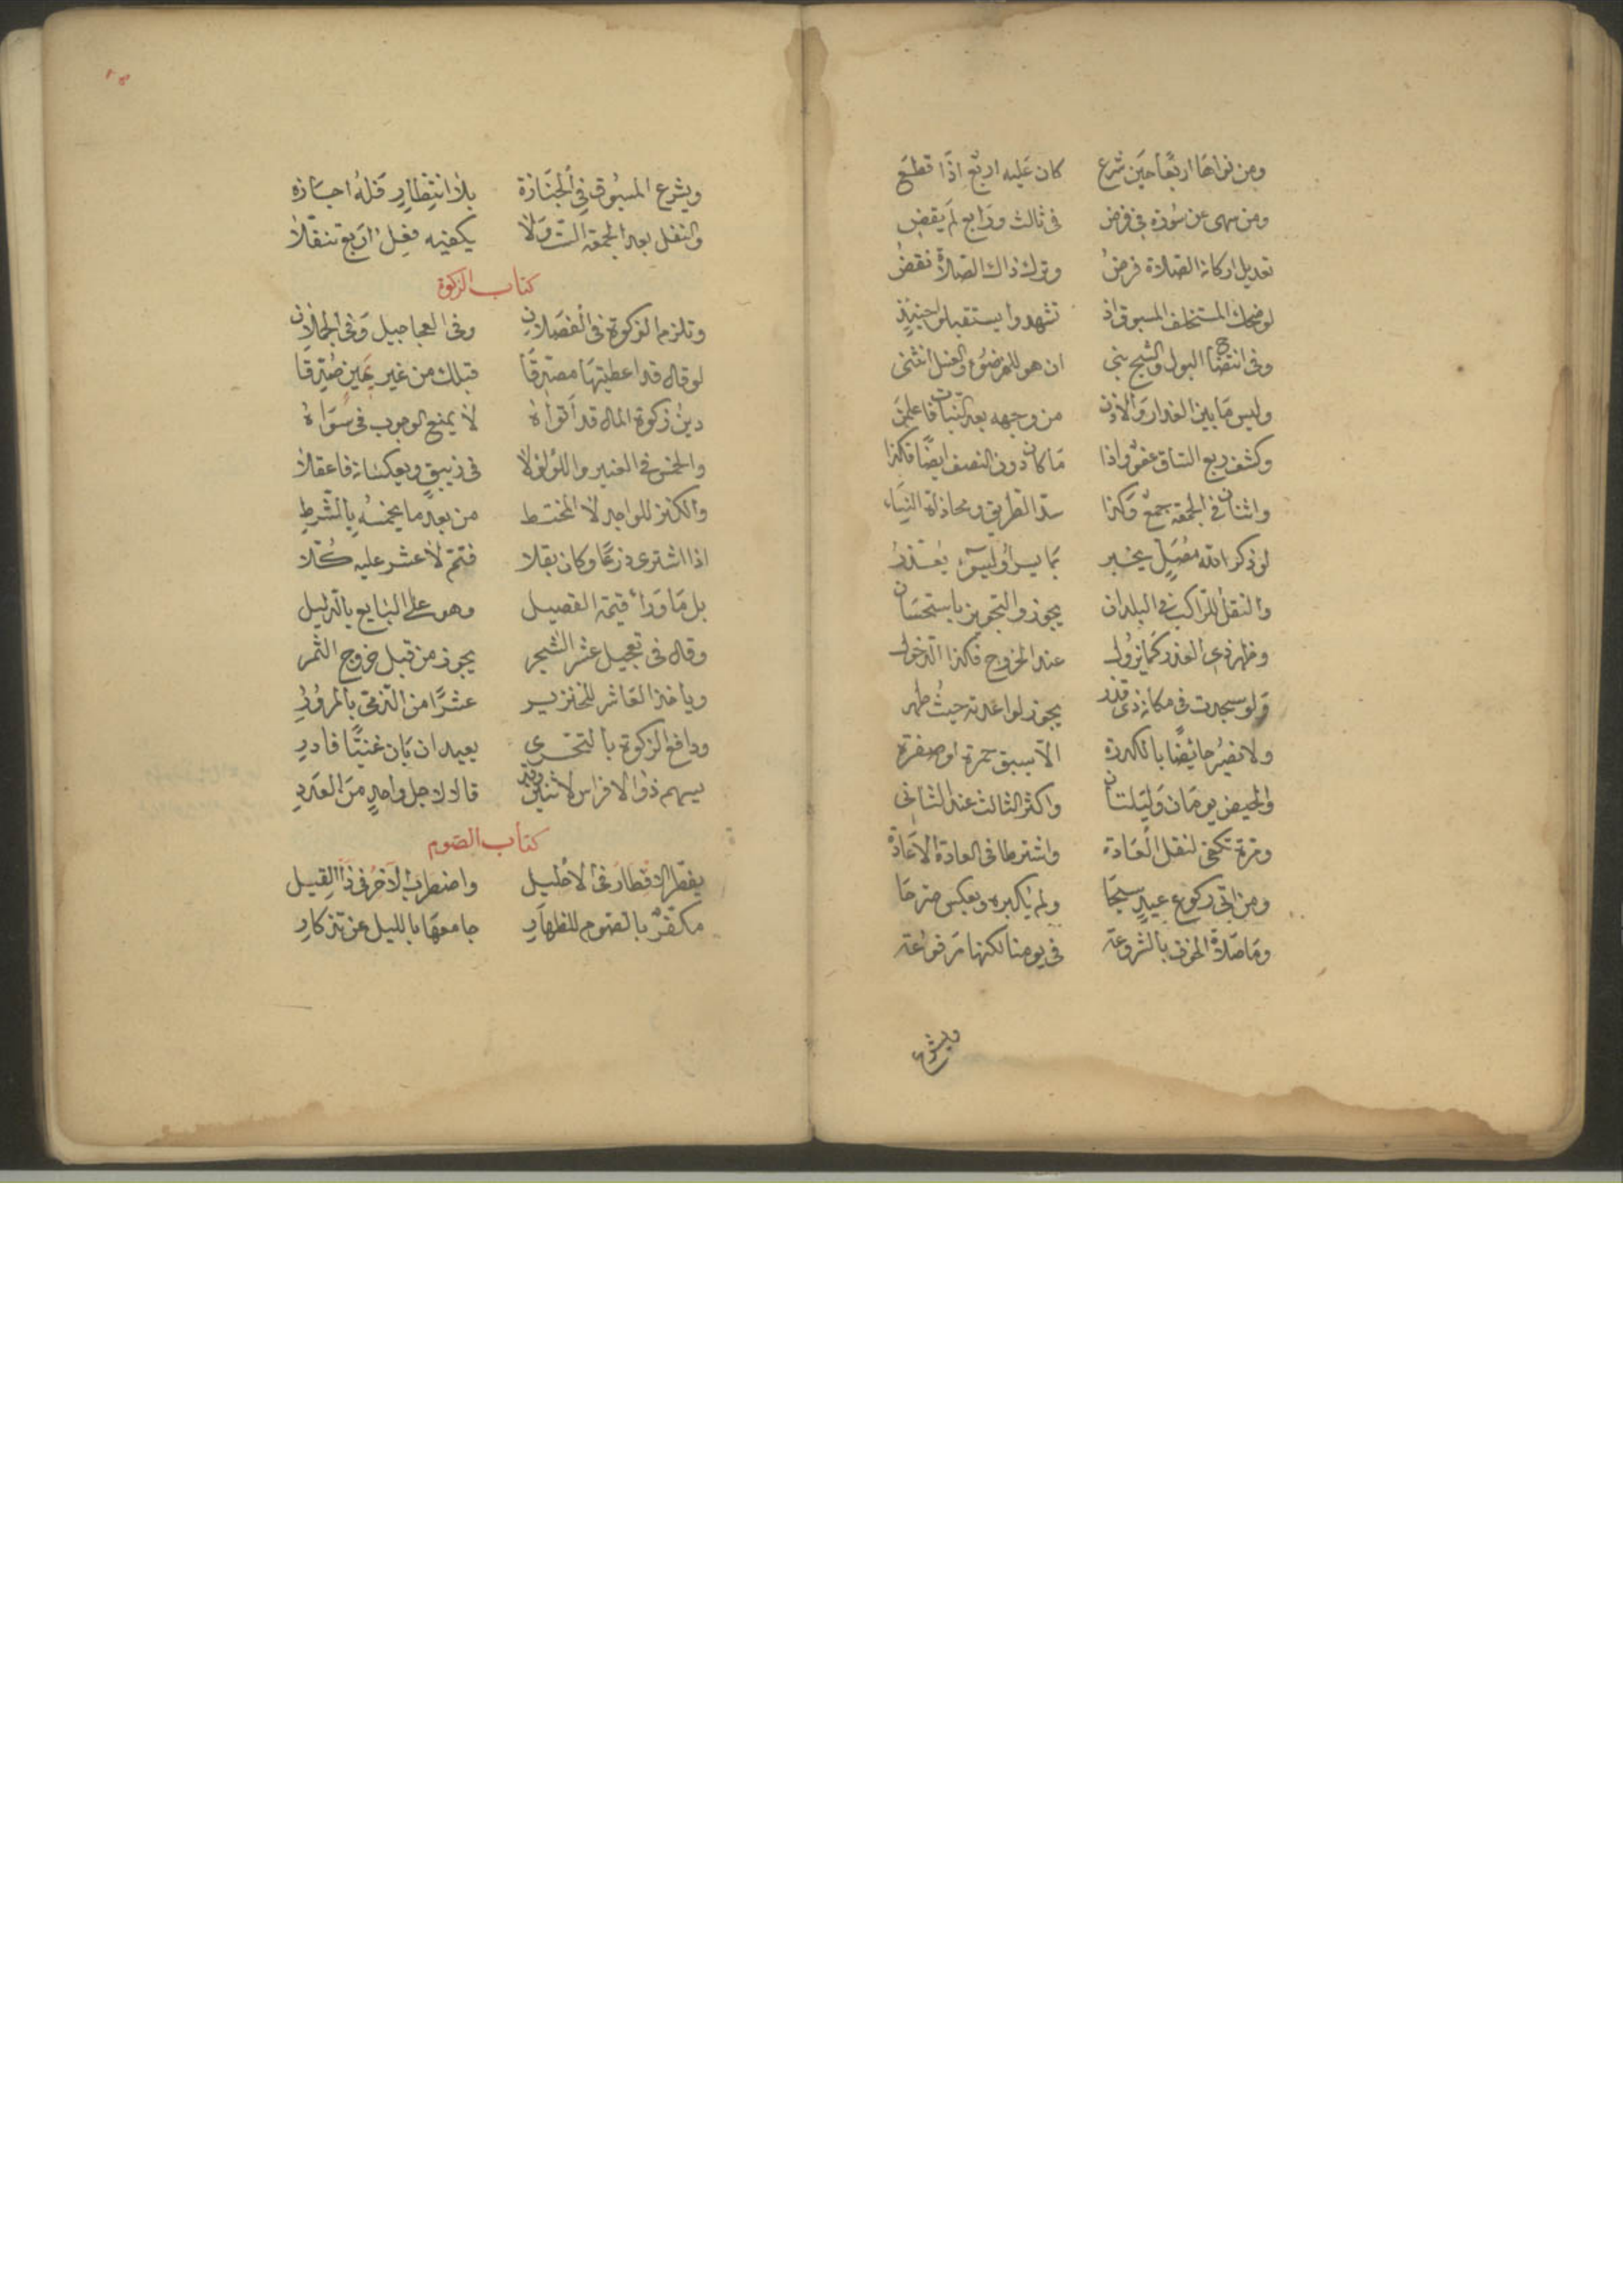 ومن نواها اربعًا حين شرع كان عليه اربع اذا قطع
ومن سهى عن سورة في فرض فى ثالث ورابع لم يقض
تعديل اركان الصلاة فرض وترك ذاك الصلاة نقض
لو ضحك المستخلف المسبوق اذ تشهدوا يستقبلوا حينئذ
وفى انتضاح البول والثلج بنى ان هو للوضوء والغسل انثنى
وليس ما بين العذار والاذن من وجهه بعد النبات فاعلمن
وكشف ربع الساق عفو واذا ما كان دون النصف ايضًا فكذا
واثنان فى الجمعة جمع وكذا سد الطريق ومحاذاة النساء
لو ذكر الله مصل يخبر بما يسر او ليسوء يعذر
والنفل للراكب فى البلدان يجوز والتجويز باستحسان
وظهر ذى العذر كما يزول عند الخروج فكذا الدخول
ولو سجدت فى مكان ذى قذر يجوز لو اعدته حيث طهر
ولا تصير حائضًا بالكدرة الا بسبق حمرة او صفرة
والحيض يومان وليلتان واكثر الثالث عند الثانى
ومرة تكفى لنقل العادة واشترطا فى العادة الاعادة
ومن اتى ركوع عيد سبحا ولم يكبره وبعكس صرحا
وما صلاة الخوف بالمشروعة فى يومنا لكنها مرفوعة
ويشرع
ويشرع المسبوق فى الجنازة بلا انتظار فله اجازه
والنفل بعد الجمعة الست ولا يكفيه فعل اربع تنفلا
كتاب الزكوة
وتلزم الزكوة فى الفصلان وفى العجاجيل وفى الحملان
لو قال قد اعطيتها مصدقا قبلك من غير يمين صدقا
دين زكوة المال قد اتواه لا يمنع الوجوب فى سواه
والخمس فى العنبر واللؤلؤ لا فى زيبق ويعكسانه فاعقلا
والكنز للواجد لا المختط من بعد ما يخمسه بالشرط
اذا اشترى زرعًا وكان بقلا فتم لا عشر عليه كلا
بل ما ورا قيمة الفصيل وهو على البايع بالدليل
وقال فى تعجيل عشر الشجر يجوز من قبل خروج الثمر
وياخذ العاشر للخنزير عشرًا من الذمى بالمرور
ودافع الزكوة بالتحرى يعيد ان بان غنيًّا فادر
يسهم ذو الافراس لاثنين وقد قالا لاجل واحد من العدد
كتاب الصوم
يفطر الاقطار فى الاحليل واضطرب الآخر فى ذا القيل
مكفر بالصوم للظهار جامعها بالليل عن تذكار